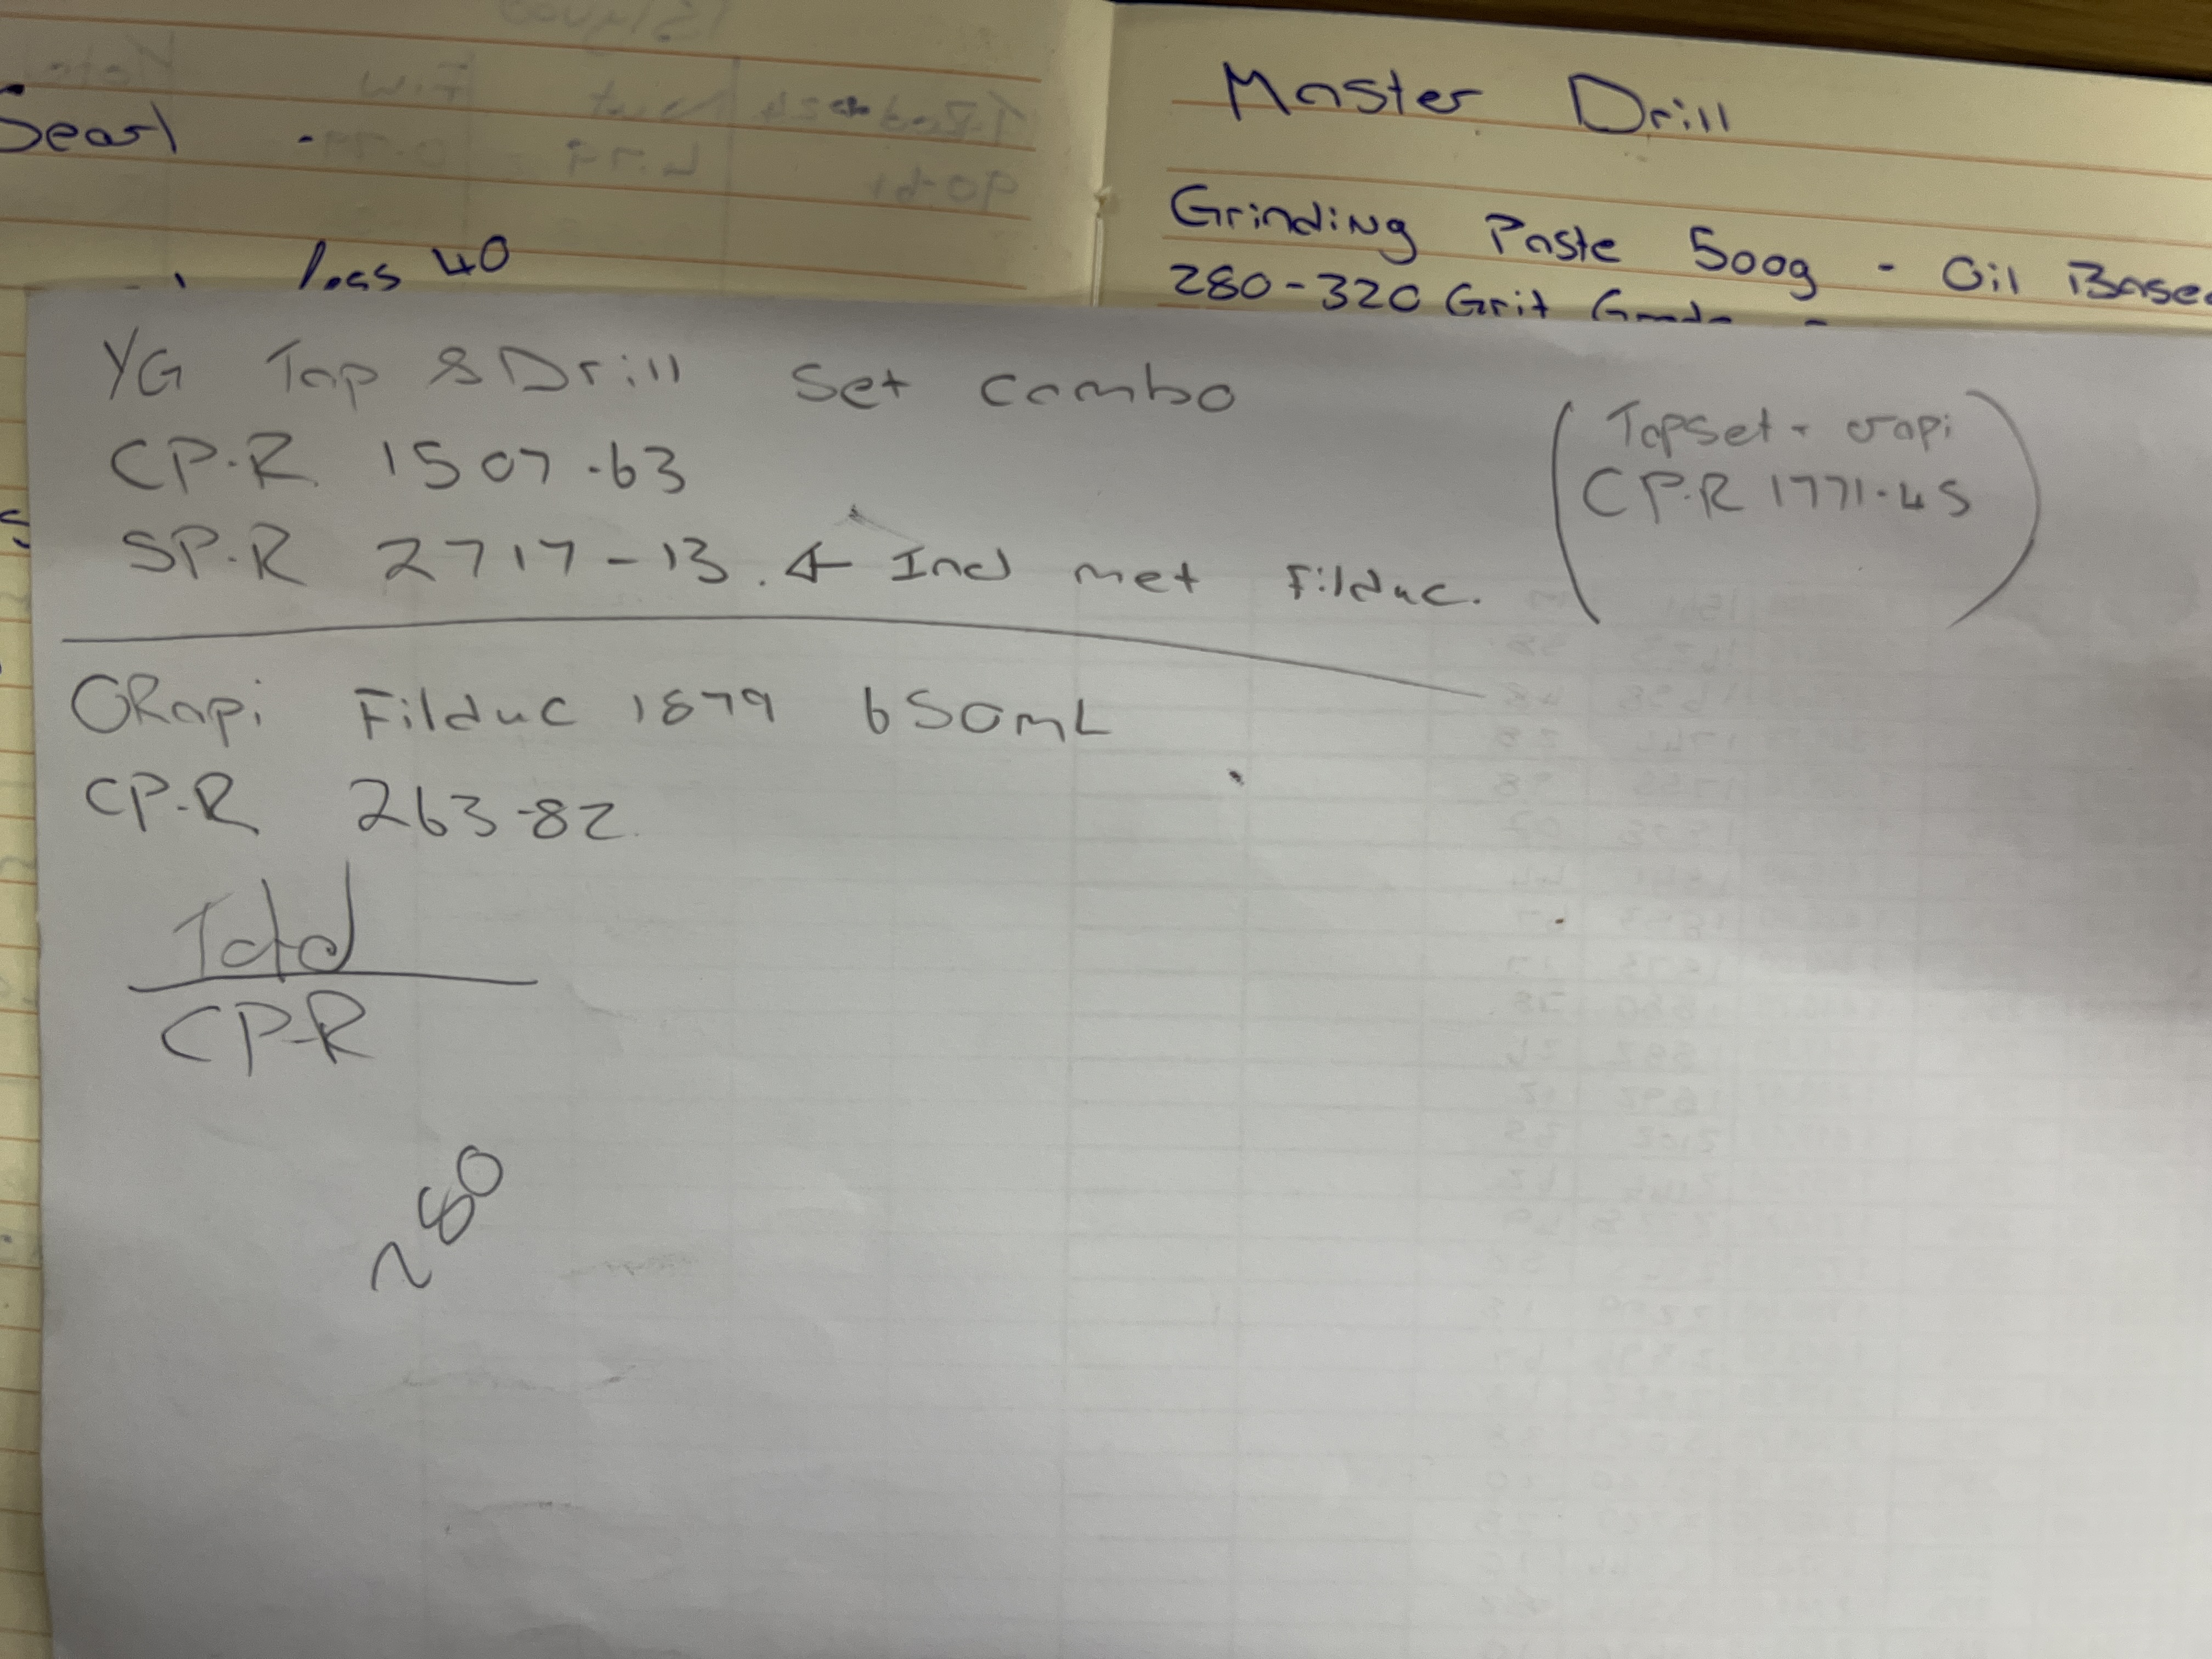 Master Drill
Grinding Paste 500g - Oil Based
280-320 Grit
loss 40
YG Tap & Drill Set Combo
CP.R 1507-63
SP.R 2717-13.4 Ind met Filduc.
(Tapset + orapi
CP.R 1771-45)
ORapi Filduc 1879 650mL
CP.R 263-82
Total
CP-R
~280